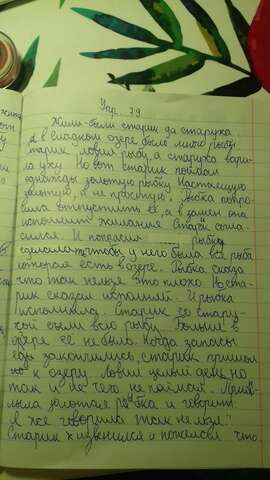 Упр. 79
Жили-были старик да старуха
А в сладком озере было много рыбы
тарик ловил рыбу, а старуха вари-
ла уху. Но вот старик поймал
однажды золотую рыбку. Настоящую
золотую, а не простую. Рыбка попро-
сила отпустить её, а в замен она
исполнит желания. Старик согла-
сился. И попросил рыбку
чтобы у него была вся рыба
которая есть в озере. Рыбка сказа
что так нельзя это плохо. Но ста-
рик сказал исполняй. И рыбка
исполнила. Старик со стару-
хой съели всю рыбу. Больше в
озере её не было. Когда запасы
еды закончились, старик пришол
к озеру. Ловил целый день но
там и не чего не поймал. Прип-
лыла золотая рыбка и говорит
я же говорила так нельзя.
Старик извенился и пожелал что